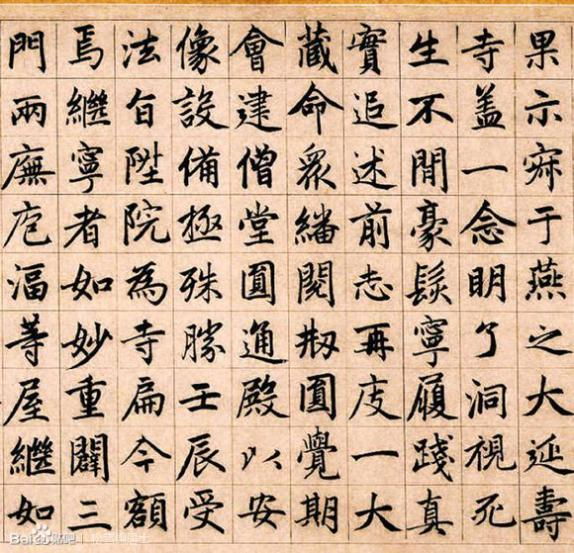 果示寂于燕之大延壽
寺盖一念明了洞視死
生不間豪髮寧履踐真
實追述前志再庋一大
藏命衆繙閱刱圓覺期
會建僧堂圓通殿以安
像設備極殊勝壬辰受
法旨陞院為寺扁今額
焉繼寧者如妙重闢三
門兩廡庖湢等屋繼如
Bai 贴吧